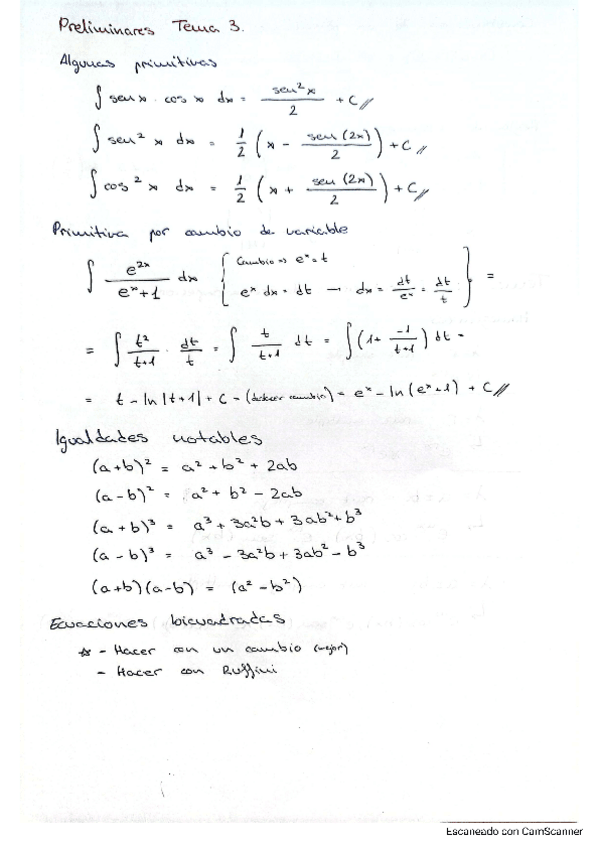 Preliminares Tema 3.
Algunas primitivas
∫ sen x · cos x dx = sen²x / 2 + C //
∫ sen² x dx = 1/2 (x - sen(2x)/2) + C //
∫ cos² x dx = 1/2 (x + sen(2x)/2) + C //
Primitiva por cambio de variable
∫ e^{2x}/(e^x+1) dx { Cambio => e^x = t
e^x dx = dt → dx = dt/e^x = dt/t } =
= ∫ t²/(t+1) · dt/t = ∫ t/(t+1) dt = ∫ (1 + -1/(t+1)) dt =
= t - ln|t+1| + C = (deshacer cambio) = e^x - ln(e^x+1) + C //
Igualdades notables
(a+b)² = a² + b² + 2ab
(a-b)² = a² + b² - 2ab
(a+b)³ = a³ + 3a²b + 3ab² + b³
(a-b)³ = a³ - 3a²b + 3ab² - b³
(a+b)(a-b) = (a² - b²)
Ecuaciones bicuadradas
☆ - Hacer con un cambio (mejor)
- Hacer con Ruffini
Escaneado con CamScanner